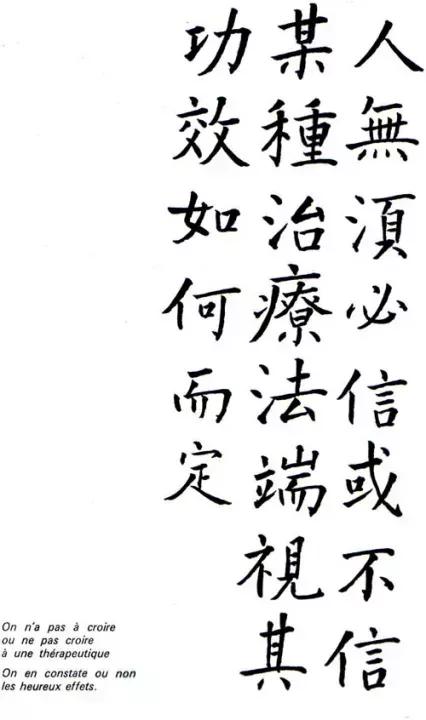 人無須必信或不信
某種治療法端視其
功效如何而定
On n'a pas à croire
ou ne pas croire
à une thérapeutique
On en constate ou non
les heureux effets.